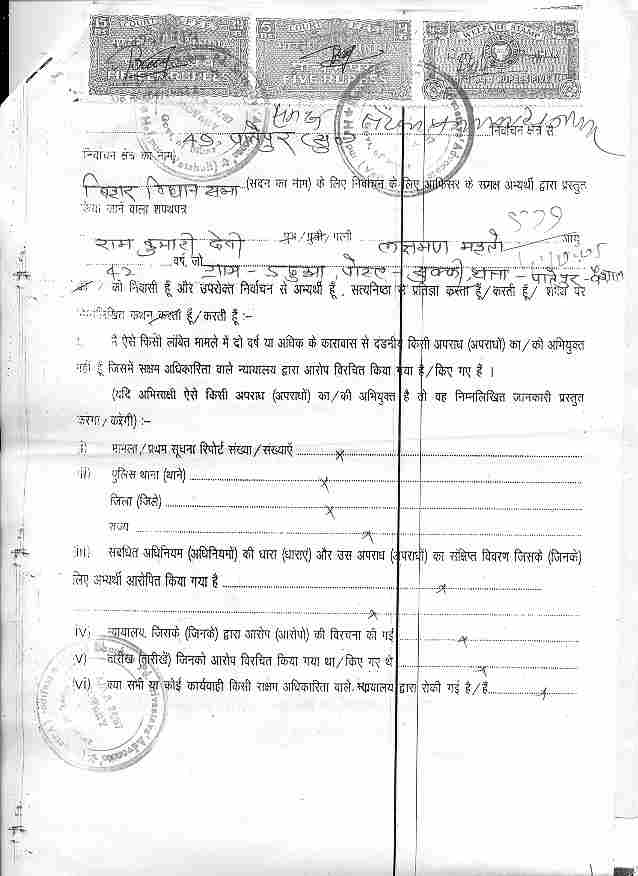 15
15
COURT FEE
COURT FEE
WELFARE STAMP
FIVE RUPEES
RUPEES FIVE
निर्वाचन क्षेत्र से
निर्वाचन क्षेत्र का नाम)
बिहार विधान सभा (सदन का नाम) के लिए निर्वाचन के लिए आफिसर के समक्ष अभ्यर्थी द्वारा प्रस्तुत
किया जाने वाला शपथपत्र
राम कुमारी देवी पुत्र/पुत्री/पत्नी लक्षमण महतो आयु
42 वर्ष, जो ग्राम - पोस्ट - थाना - पातेपुर - वैशाली
का/की निवासी हूँ और उपरोक्त निर्वाचन से अभ्यर्थी हूँ , सत्यनिष्ठा से प्रतिज्ञा करता हूँ/करती हूँ/ शपथ पर
निम्नलिखित कथन करता हूँ/करती हूँ :-
मै ऐसे किसी लंबित मामले में दो वर्ष या अधिक के कारावास से दंडनीय किसी अपराध (अपराधों) का/की अभियुक्त
नहीं हूँ जिसमें सक्षम अधिकारिता वाले न्यायालय द्वारा आरोप विरचित किया गया है/किए गए है ।
(यदि अभिसाक्षी ऐसे किसी अपराध (अपराधों) का/की अभियुक्त है तो वह निम्नलिखित जानकारी प्रस्तुत
करेगा/करेगी) :-
i) मामला/प्रथम सूचना रिपोर्ट संख्या/संख्याएँ ........ x
ii) पुलिस थाना (थाने) ........ x
जिला (जिले) ........ x
राज्य ........ x
iii) संबंधित अधिनियम (अधिनियमों) की धारा (धाराएं) और उस अपराध (अपराधों) का संक्षिप्त विवरण जिसके (जिनके)
लिए अभ्यर्थी आरोपित किया गया है ........ x
........ x
iv) न्यायालय, जिसके (जिनके) द्वारा आरोप (आरोपो) की विरचना की गई ........ x
v) तारीख (तारीखें) जिनको आरोप विरचित किया गया था/किए गए थे ........ x
vi) क्या सभी या कोई कार्यवाही किसी सक्षम अधिकारिता वाले न्यायालय द्वारा रोकी गई है/हैं ........ x